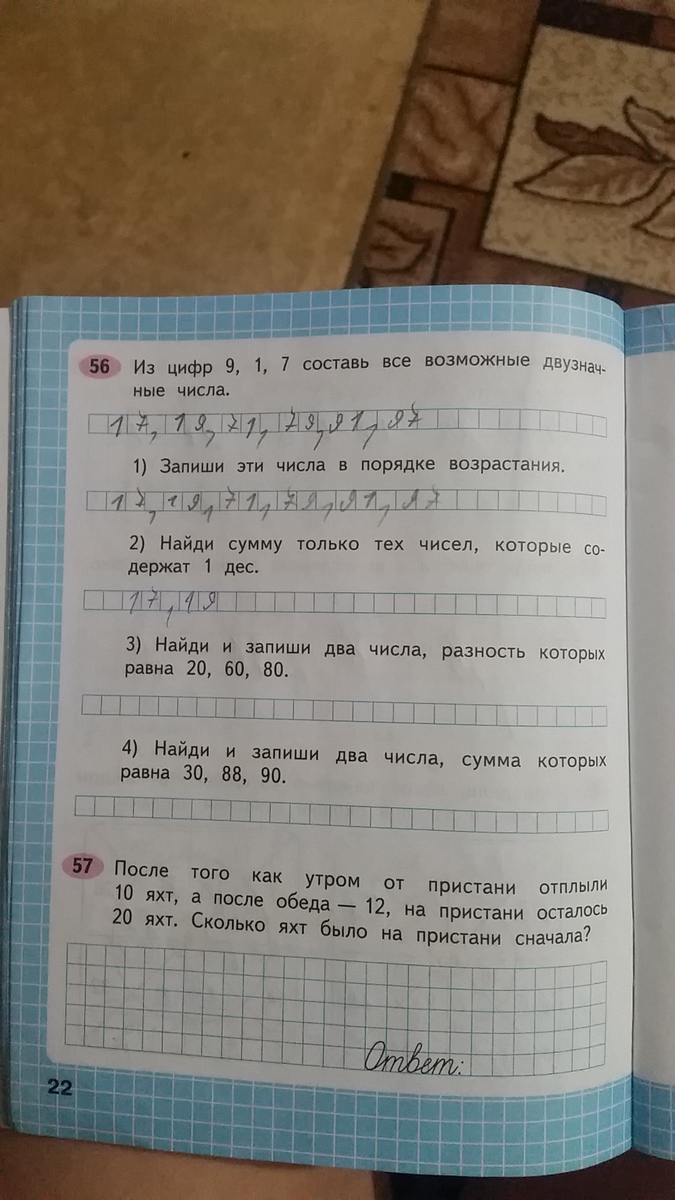 56 Из цифр 9, 1, 7 составь все возможные двузнач-
ные числа.
17, 19, 71, 79, 91, 97
1) Запиши эти числа в порядке возрастания.
17, 19, 71, 79, 91, 97
2) Найди сумму только тех чисел, которые со-
держат 1 дес.
17, 19
3) Найди и запиши два числа, разность которых
равна 20, 60, 80.
4) Найди и запиши два числа, сумма которых
равна 30, 88, 90.
57 После того как утром от пристани отплыли
10 яхт, а после обеда — 12, на пристани осталось
20 яхт. Сколько яхт было на пристани сначала?
Ответ:
22